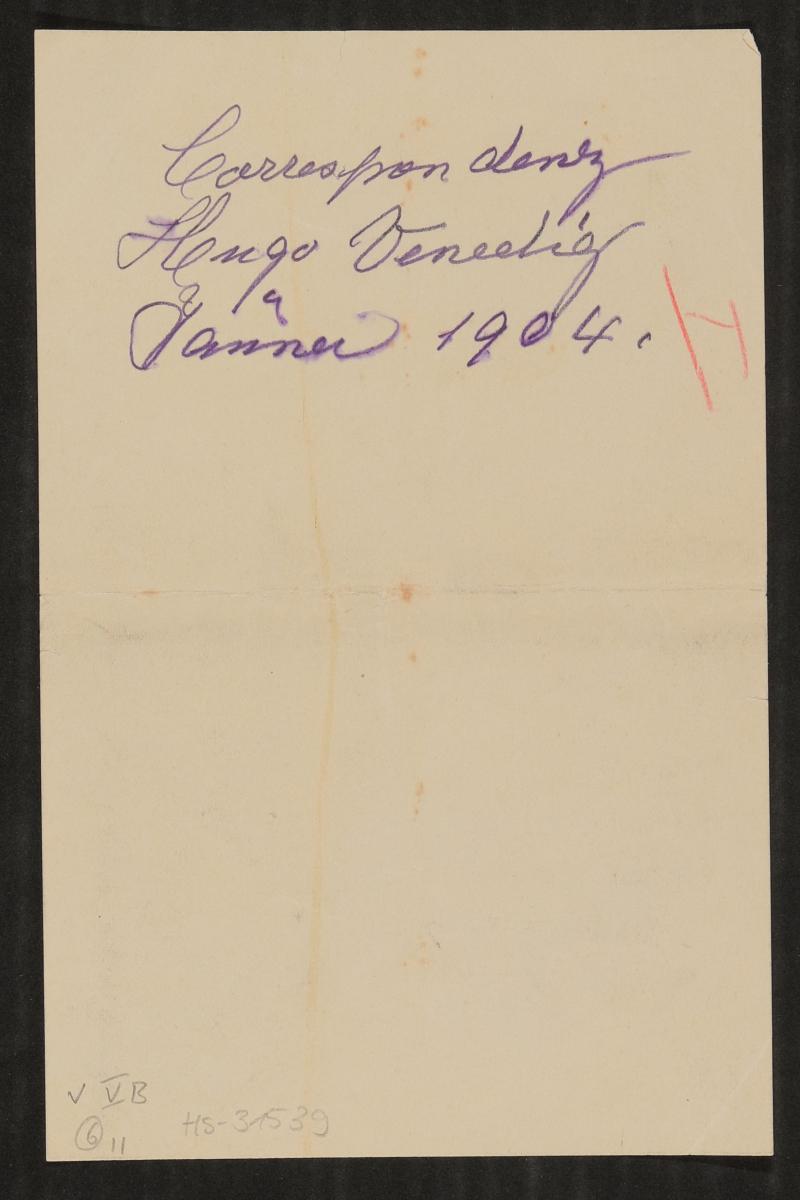 Correspondenz
Hugo Venedig
Jänner 1904.
H
V VB
6 11 HS-31539